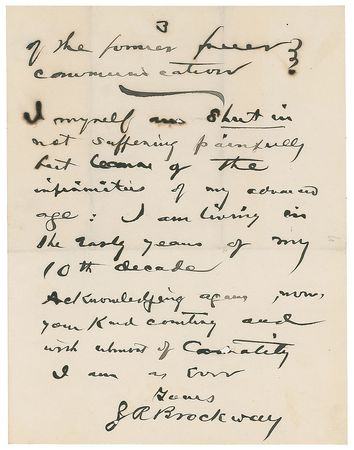 3
of the former freer
communication
I myself am shut in
not suffering painfully
but because of the
infirmities of my advanced
age: I am living in
the early years of my
10th decade
Acknowledging again, now,
your kind courtesy and
with utmost of Cordiality
I am as ever
Yours
Z R Brockway